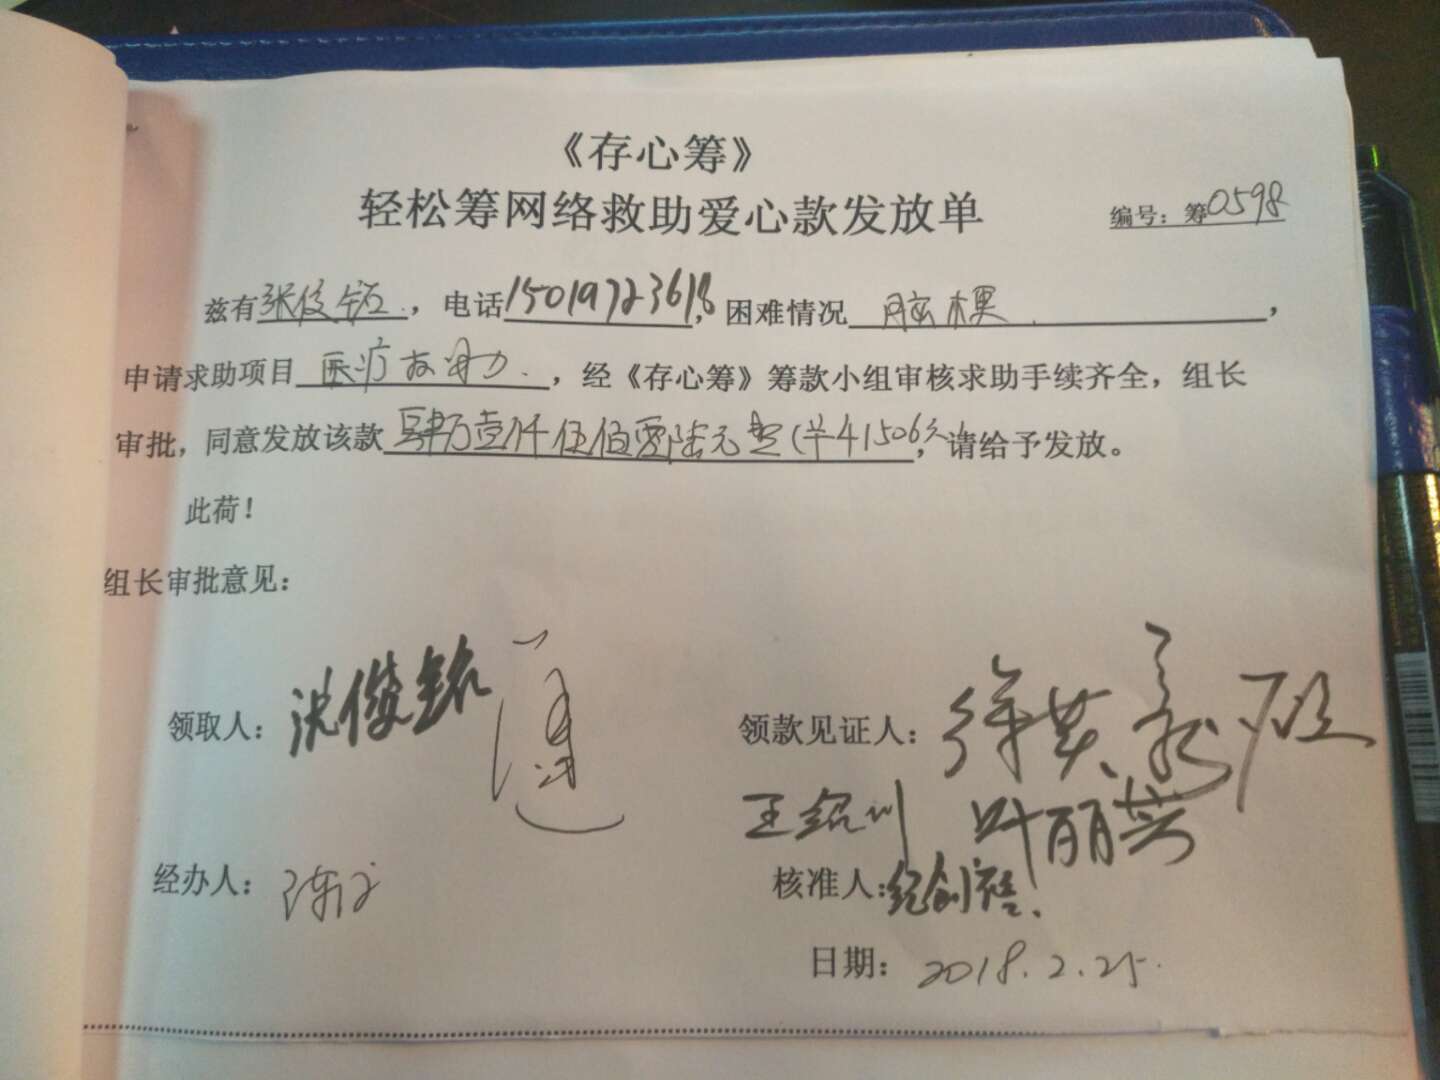 《存心筹》
轻松筹网络救助爱心款发放单
编号：筹0598
兹有张俊铭，电话15019723618，困难情况 脑梗，
申请求助项目 医疗救助，经《存心筹》筹款小组审核求助手续齐全，组长
审批，同意发放该款肆万壹仟伍佰零陆元整（￥41506元），请给予发放。
此荷！
组长审批意见：
领取人：沈俊铭
领款见证人：徐英
王绍川 叶丽英
经办人：陈
核准人：纪创禧
日期：2018.2.25.